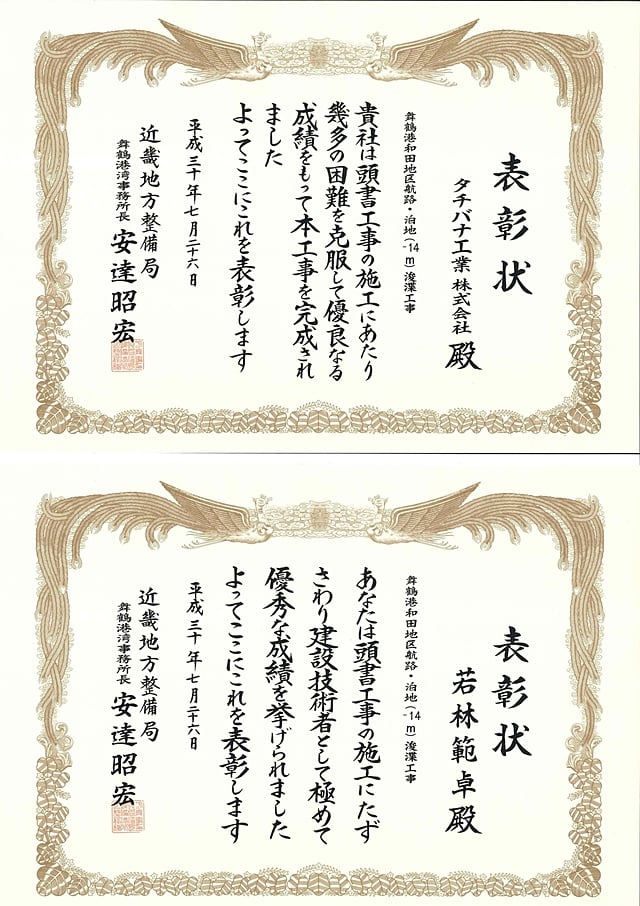 表彰状
タチバナ工業 株式会社 殿
舞鶴港和田地区航路・泊地(-14m)浚渫工事
貴社は頭書工事の施工にあたり
幾多の困難を克服して優良なる
成績をもって本工事を完成され
ました
よってここにこれを表彰します
平成三十年七月二十六日
近畿地方整備局
舞鶴港湾事務所長 安達昭宏
表彰状
若林範卓殿
舞鶴港和田地区航路・泊地(-14m)浚渫工事
あなたは頭書工事の施工にたず
さわり建設技術者として極めて
優秀な成績を挙げられました
よってここにこれを表彰します
平成三十年七月二十六日
近畿地方整備局
舞鶴港湾事務所長 安達昭宏